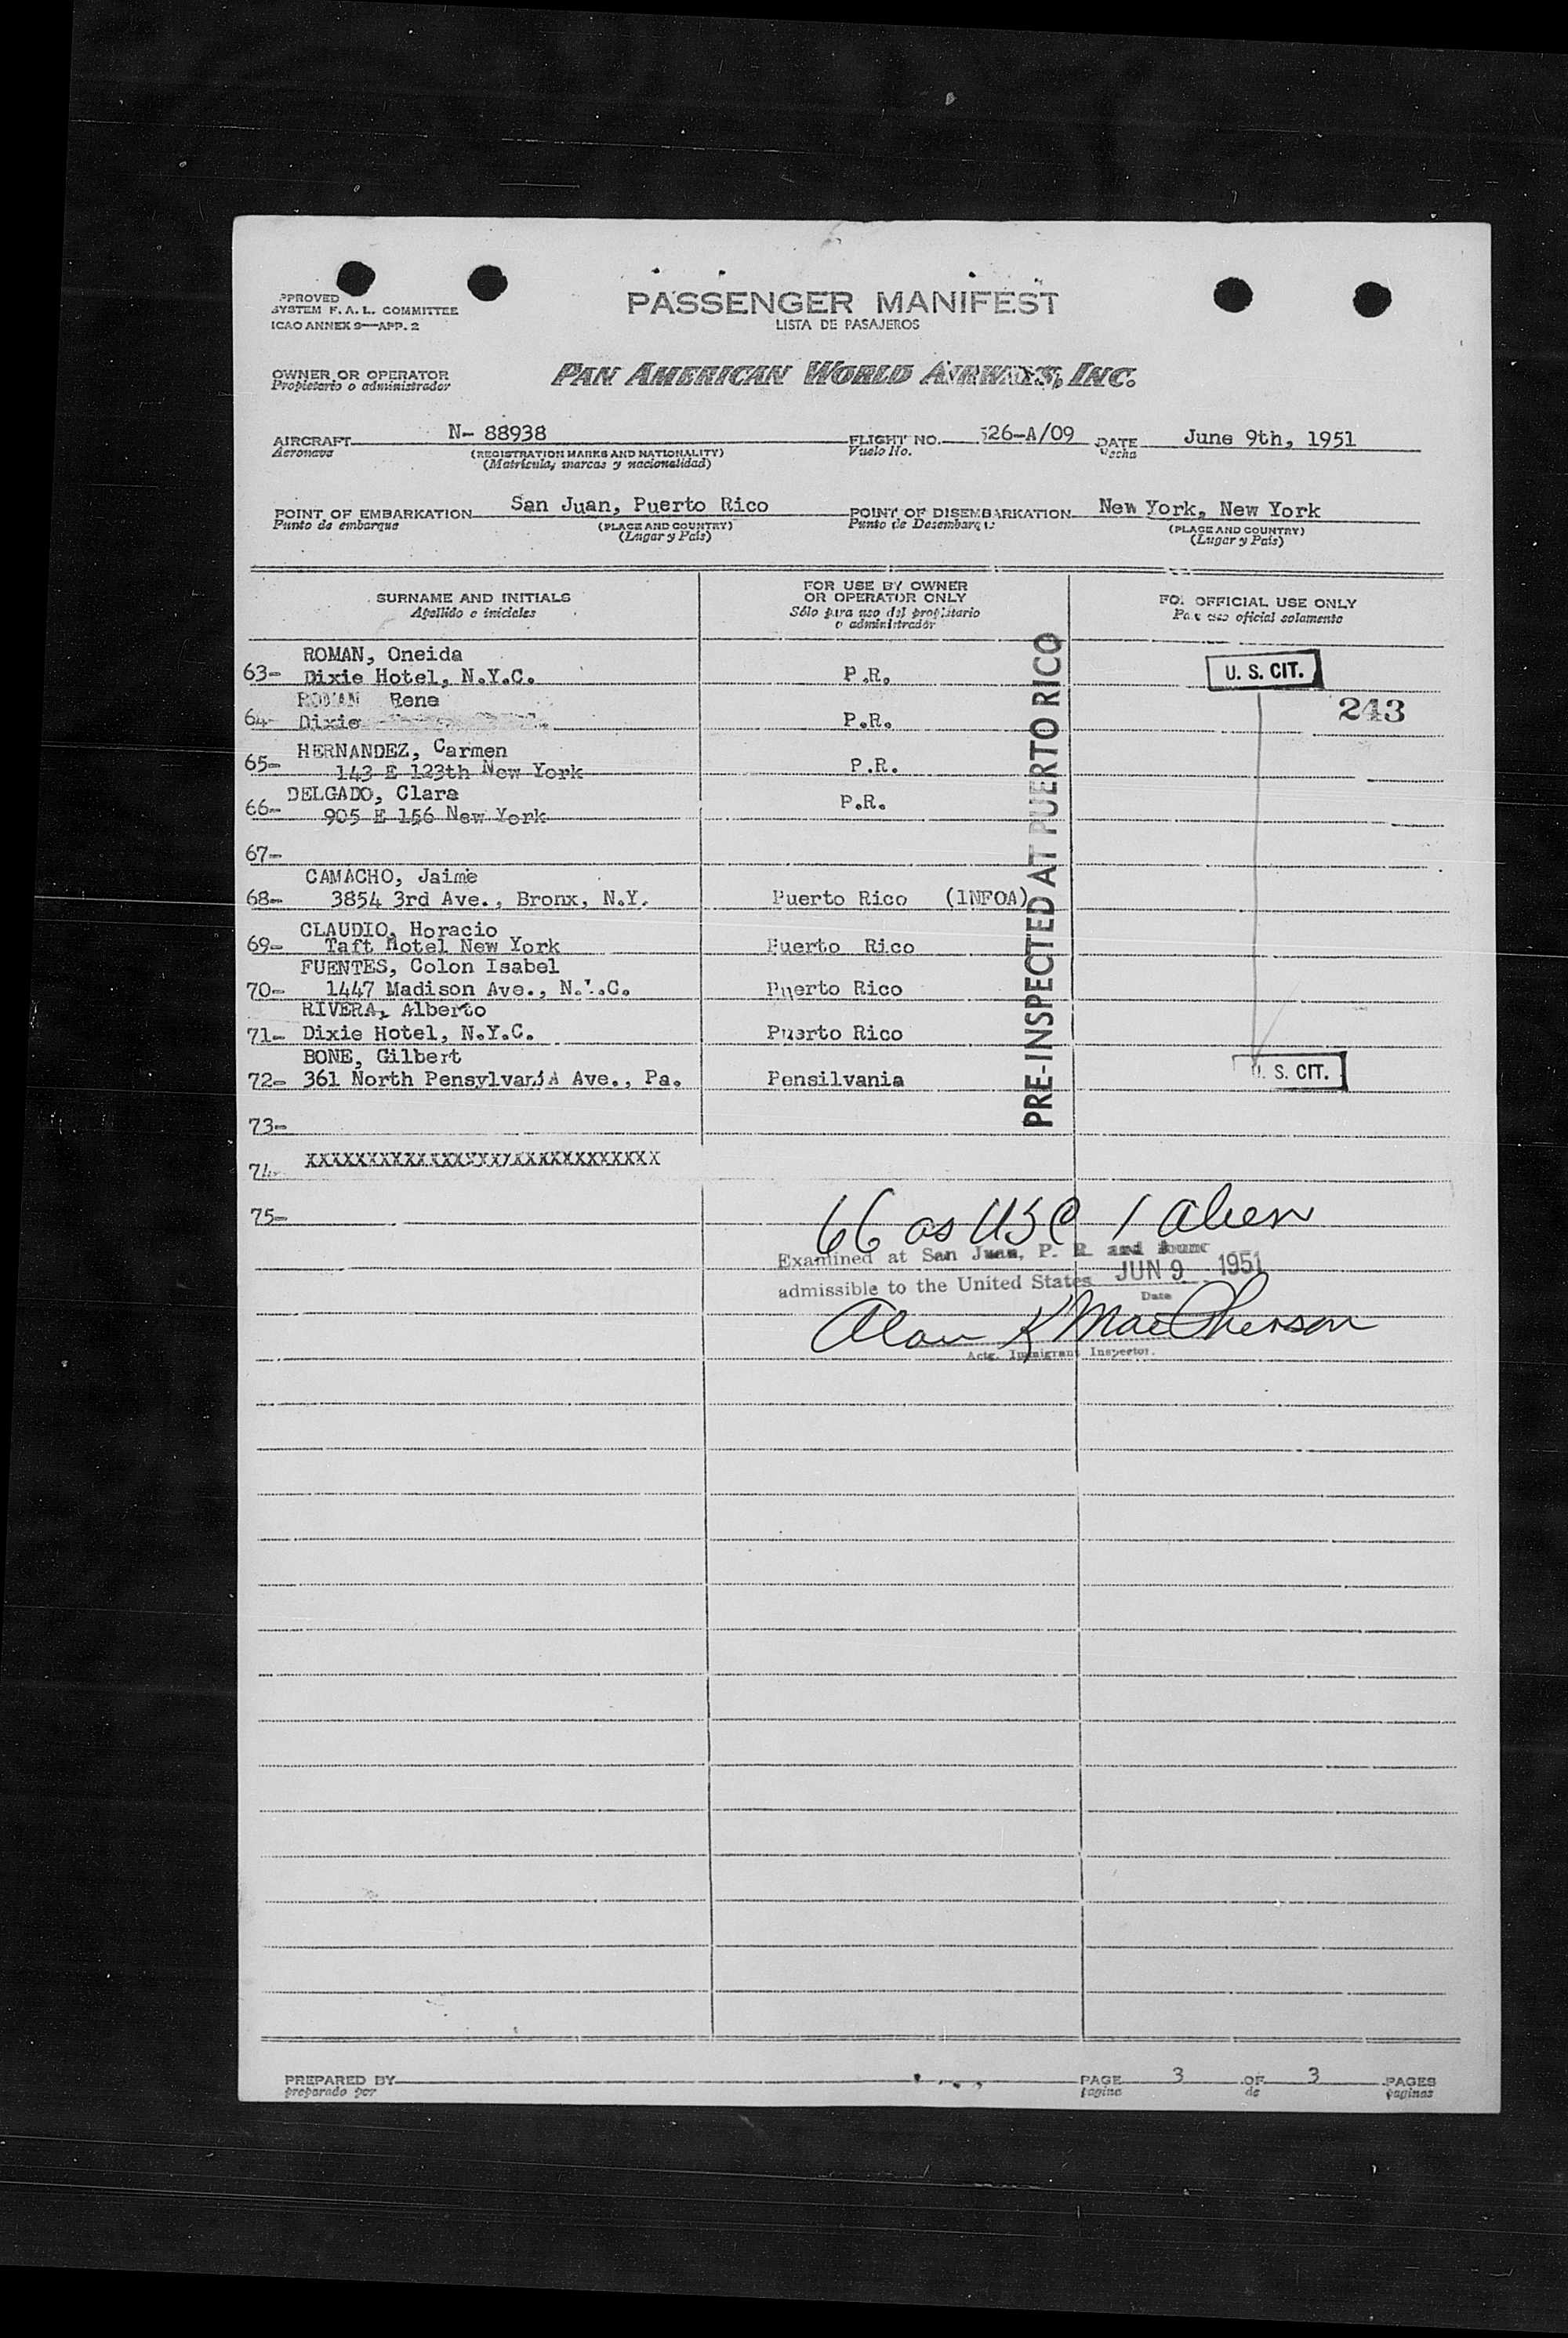 PPROVED
SYSTEM F. A. L. COMMITTEE
ICAO ANNEX 9—APP. 2
PASSENGER MANIFEST
LISTA DE PASAJEROS
OWNER OR OPERATOR
Propietario o administrador
PAN AMERICAN WORLD AIRWAYS, INC.
AIRCRAFT N- 88938 FLIGHT NO. 526-A/09 DATE June 9th, 1951
Aeronave (REGISTRATION MARKS AND NATIONALITY) Vuelo No. Fecha
(Matrícula, marcas y nacionalidad)
POINT OF EMBARKATION San Juan, Puerto Rico POINT OF DISEMBARKATION New York, New York
Punto de embarque (PLACE AND COUNTRY) Punto de Desembarque (PLACE AND COUNTRY)
(Lugar y País) (Lugar y País)
SURNAME AND INITIALS
Apellido e iniciales
FOR USE BY OWNER
OR OPERATOR ONLY
Sólo para uso del propietario
o administrador
FOR OFFICIAL USE ONLY
Para uso oficial solamente
ROMAN, Oneida
63- Dixie Hotel, N.Y.C. P.R. U. S. CIT.
ROMAN Rene 243
64- Dixie P.R.
HERNANDEZ, Carmen
65- 143 E 123th New York P.R.
DELGADO, Clara
66- 905 E 156 New York P.R.
67-
CAMACHO, Jaime
68- 3854 3rd Ave., Bronx, N.Y. Puerto Rico (1NFOA)
CLAUDIO, Horacio
69- Taft Hotel New York Puerto Rico
FUENTES, Colon Isabel
70- 1447 Madison Ave., N.Y.C. Puerto Rico
RIVERA, Alberto
71- Dixie Hotel, N.Y.C. Puerto Rico
BONE, Gilbert
72- 361 North Pensylvania Ave., Pa. Pensilvania U. S. CIT.
PRE-INSPECTED AT PUERTO RICO
73-
74-
75-
66 as USC 1 Alien
Examined at San Juan, P. R. and found
admissible to the United States JUN 9 1951
Date
Alan K MacPherson
Actg. Immigrant Inspector.
PREPARED BY PAGE 3 OF 3 PAGES
preparado por pagina de paginas